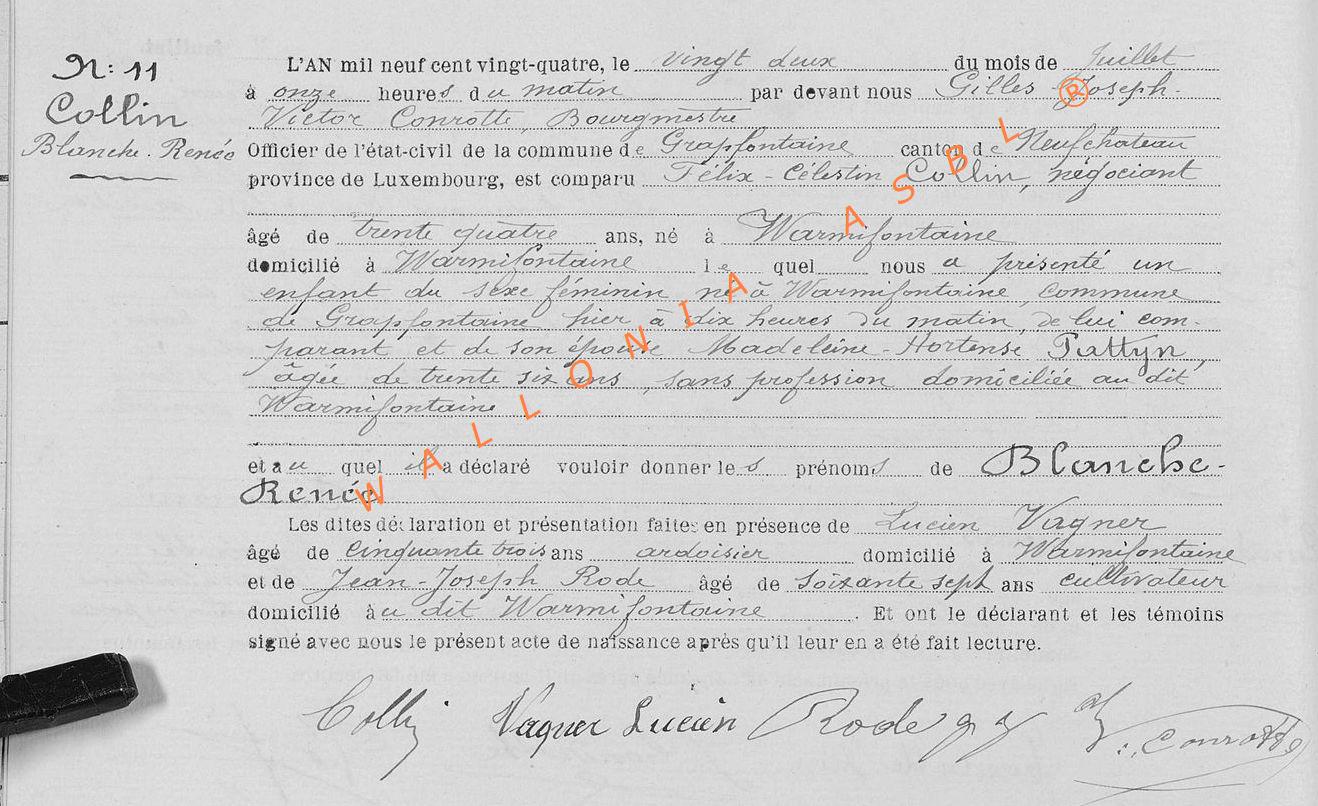 N: 11
Collin
Blanche-Renée
L'AN mil neuf cent vingt-quatre, le vingt deux du mois de Juillet
à onze heures du matin par devant nous Gilles-Joseph-
Victor Conrotte, Bourgmestre
Officier de l'état-civil de la commune de Grapfontaine canton de Neufchateau
province de Luxembourg, est comparu Félix-Célestin Collin, négociant
âgé de trente quatre ans, né à Warmifontaine
domicilié à Warmifontaine lequel nous a présenté un
enfant du sexe féminin né à Warmifontaine, commune
de Grapfontaine hier à dix heures du matin, de lui com-
parant et de son épouse Madeleine-Hortense Pattyn,
âgée de trente six ans, sans profession domiciliée au dit
Warmifontaine
et au quel il a déclaré vouloir donner les prénoms de Blanche-
Renée
Les dites déclaration et présentation faites en présence de Lucien Vagner
âgé de cinquante trois ans ardoisier domicilié à Warmifontaine
et de Jean-Joseph Rode âgé de soixante sept ans cultivateur
domicilié au dit Warmifontaine. Et ont le déclarant et les témoins
signé avec nous le présent acte de naissance après qu'il leur en a été fait lecture.
Collin Vagner Lucien Rode J J V. Conrotte
WALLONIA ASBL ®